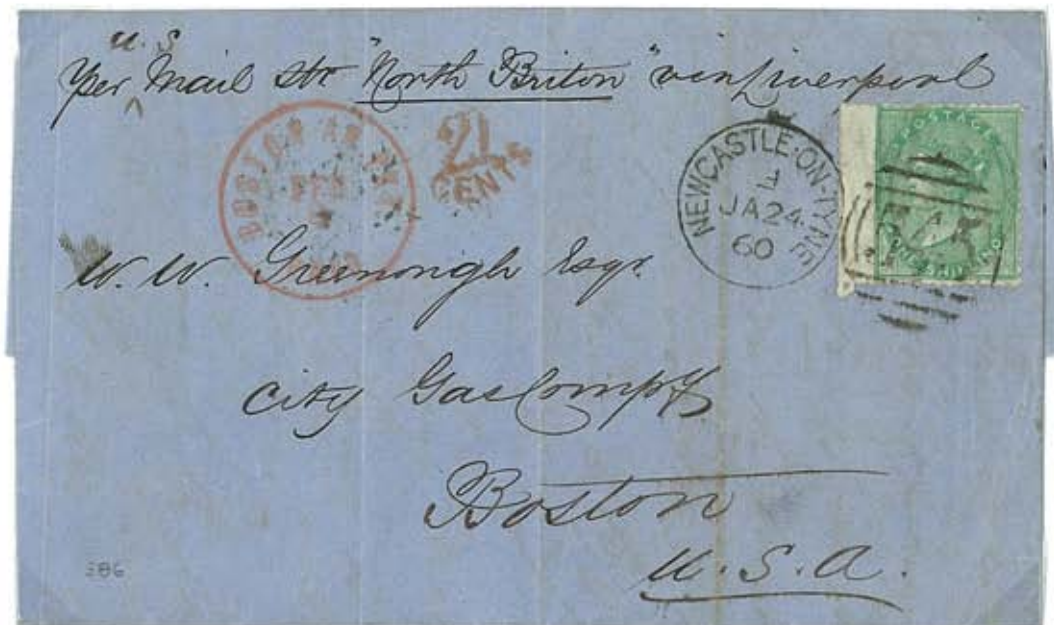 U.S
per Mail Str "North Briton" via Liverpool
BOSTON AM. PKT
FEB
21
CENTS
NEWCASTLE-ON-TYNE
JA 24
60
POSTAGE
ONE SHILLING
W. W. Greenough Esqr.
City Gas Compy
Boston
U.S.A.
386